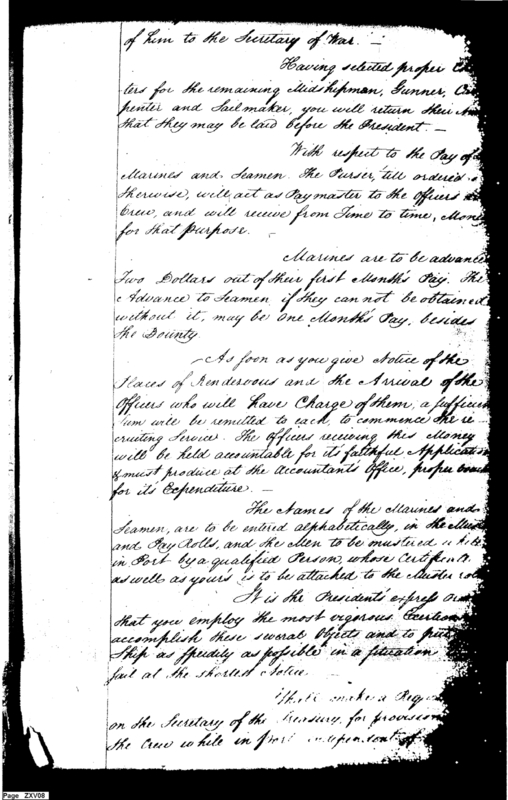 of him to the Secretary of War. —
Having selected proper
ters for the remaining Midshipman, Gunner, Car
penter and Sailmaker, you will return their
that they may be laid before the President. —
With respect to the Pay of
Marines and Seamen. The Purser, till ordered o
therwise, will act as Paymaster to the Officers and
Crew, and will receive from Time to time, Money
for that purpose.
Marines are to be advance
Two Dollars out of their first Month's Pay. The
Advance to Seamen if they cannot be obtained
without it, may be one Month's Pay, besides
the Bounty.
As soon as you give Notice of the
Places of Rendezvous and the Arrival of the
Officers who will have Charge of them, a sufficien
Sum will be remitted to each, to commence the re
cruiting Service. The Officers receiving this Money
will be held accountable for it's faithful Application
& must produce at the Accountant's Office, proper
for it's Expenditure. —
The Names of the Marines and
Seamen, are to be entered alphabetically, in the Muster
and Pay Rolls, and the Men to be mustered
in Port by a qualified Person, whose Certificate
as well as yours is to be attached to the Muster roll
It is the President's express
that you employ the most vigorous Exertion
accomplish these several Objects and to put
Ship as speedily as possible in a situation
sail at the shortest Notice.
make a
on the Secretary of the Treasury, for provision
the Crew while in Port independent of
Page ZXV08